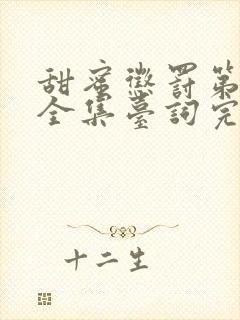 甜蜜懲罰第
全集臺詞完
十二生